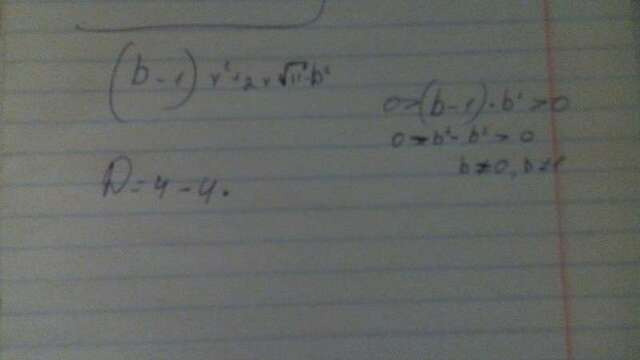 (b-1)x²+2x√11·b²
0=(b-1)·b²>0
b³-b²>0
b≠0, b≠1
D=4-4·